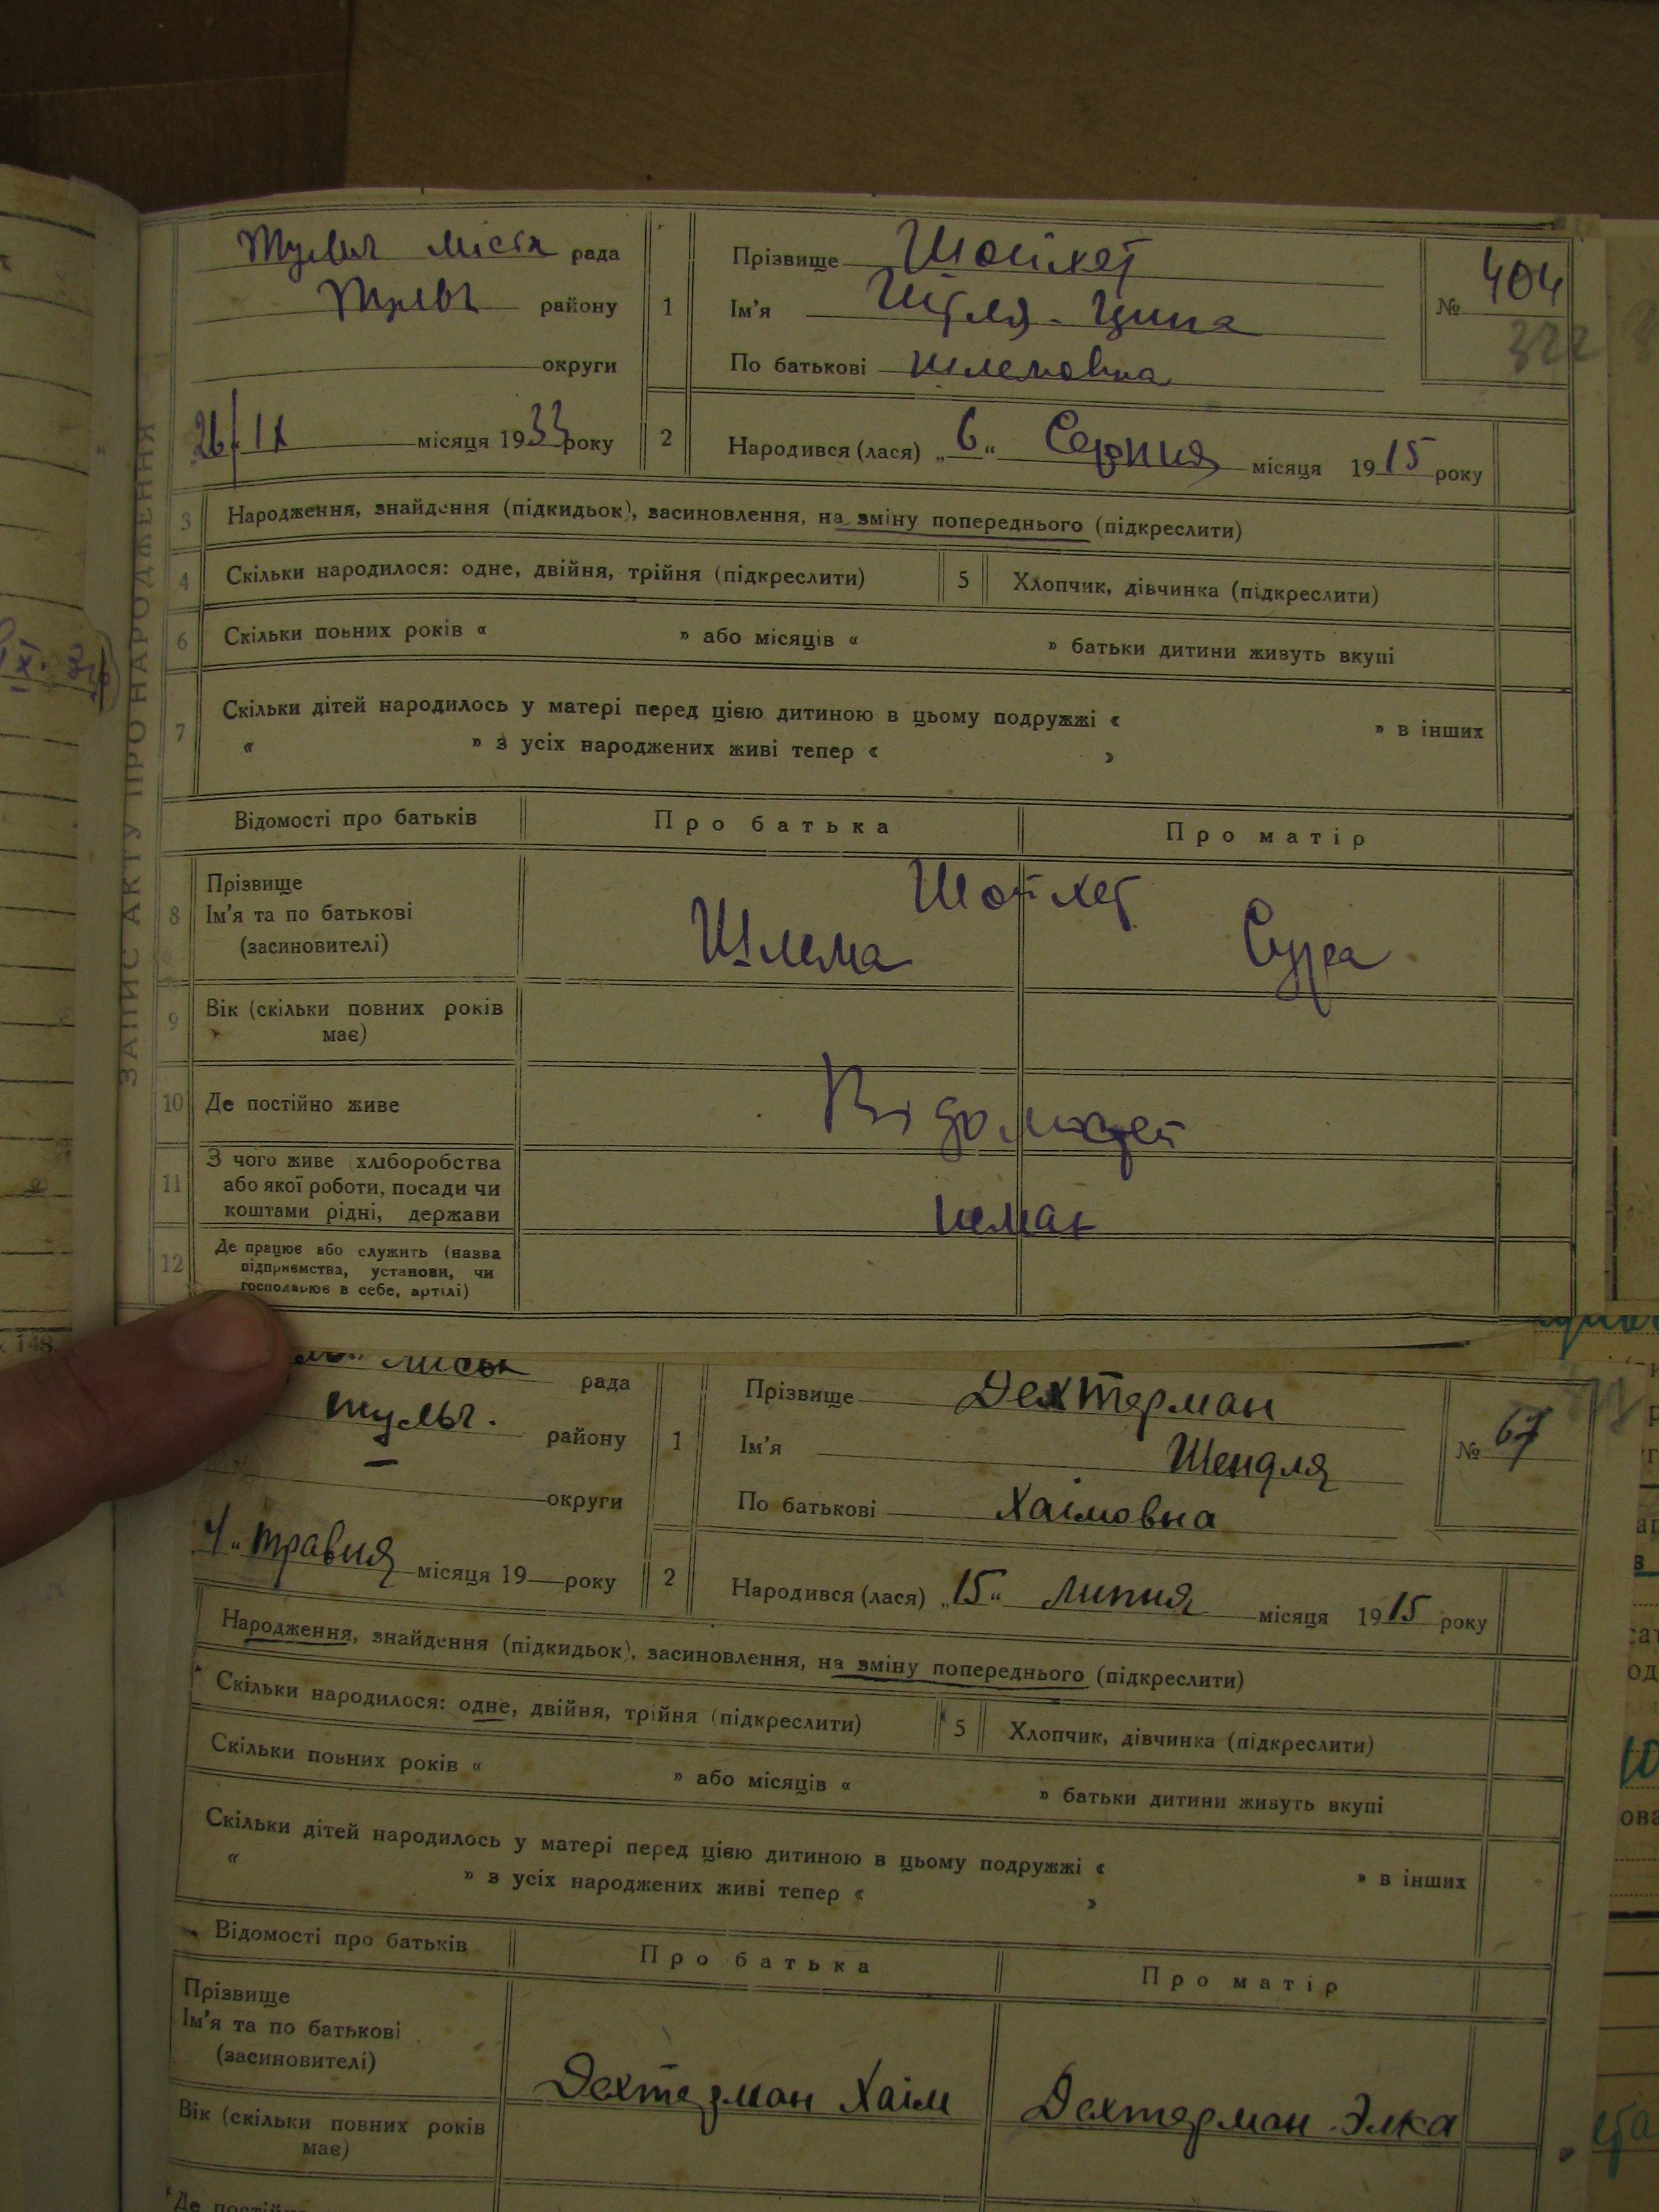 ЗАПИС АКТУ ПРО НАРОДЖЕННЯ
рада
району
округи
26/IX місяця 1933 року
1
Прізвище Шойхет
Ім'я Ципа
По батькові Шлемовна
№ 404
322
2
Народився (лася) „6" Серпня місяця 1915 року
3 Народження, знайдення (підкидьок), засиновлення, на зміну попереднього (підкреслити)
4 Скільки народилося: одне, двійня, трійня (підкреслити)
5 Хлопчик, дівчинка (підкреслити)
6 Скільки повних років « » або місяців « » батьки дитини живуть вкупі
7 Скільки дітей народилось у матері перед цією дитиною в цьому подружжі « » в інших
« » з усіх народжених живі тепер « »
Відомості про батьків
Про батька
Про матір
8 Прізвище
Ім'я та по батькові
(засиновителі)
Шойхет
Шлема
Сура
9 Вік (скільки повних років
має)
10 Де постійно живе
Відомостей
11 З чого живе (хліборобства
або якої роботи, посади чи
коштами рідні, держави
немає
12 Де працює або служить (назва
підприємства, установи, чи
господарює в себе, артілі)
148
рада
тульч. району
округи
4" травня місяця 19 року
1
Прізвище Дехтерман
Ім'я Шендля
По батькові Хаімовна
№ 67
2
Народився (лася) „15" Липня місяця 1915 року
Народження, знайдення (підкидьок), засиновлення, на зміну попереднього (підкреслити)
Скільки народилося: одне, двійня, трійня (підкреслити)
5 Хлопчик, дівчинка (підкреслити)
Скільки повних років « » або місяців « » батьки дитини живуть вкупі
Скільки дітей народилось у матері перед цією дитиною в цьому подружжі « » в інших
« » з усіх народжених живі тепер « »
Відомості про батьків
Про батька
Про матір
Прізвище
Ім'я та по батькові
(засиновителі)
Дехтерман Хаім
Дехтерман Элка
Вік (скільки повних років
має)
Де